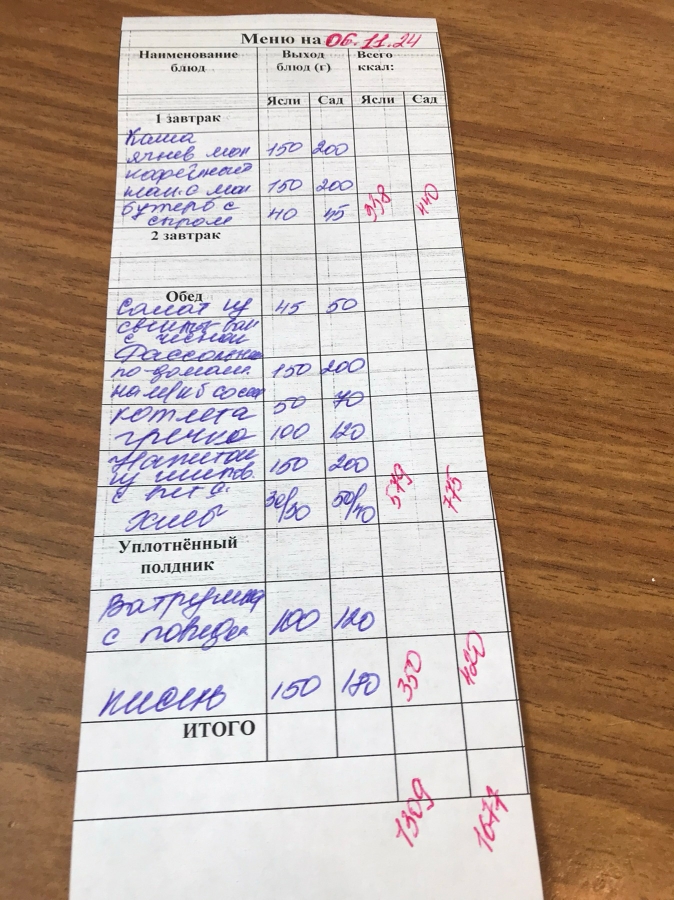 Меню на 06.11.24
Наименование блюд Выход блюд (г) Всего ккал:
Ясли Сад Ясли Сад
1 завтрак
Каша
ячнев мол 150 200
кофейный
нап. с мол 150 200
бутерб с 40 45 440
сыром
2 завтрак
Обед
Салат из 45 50
с чесном
по-домаш 150 200
на м/к б 50 70
котлета
гречка 100 120
Напиток 150 200
из шипов.
с вит С.
хлеб 30/30 50/40 579 775
Уплотнённый
полдник
Ватрушка
с повидл 100 120
кисель 150 180 350 420
ИТОГО
1309 1677